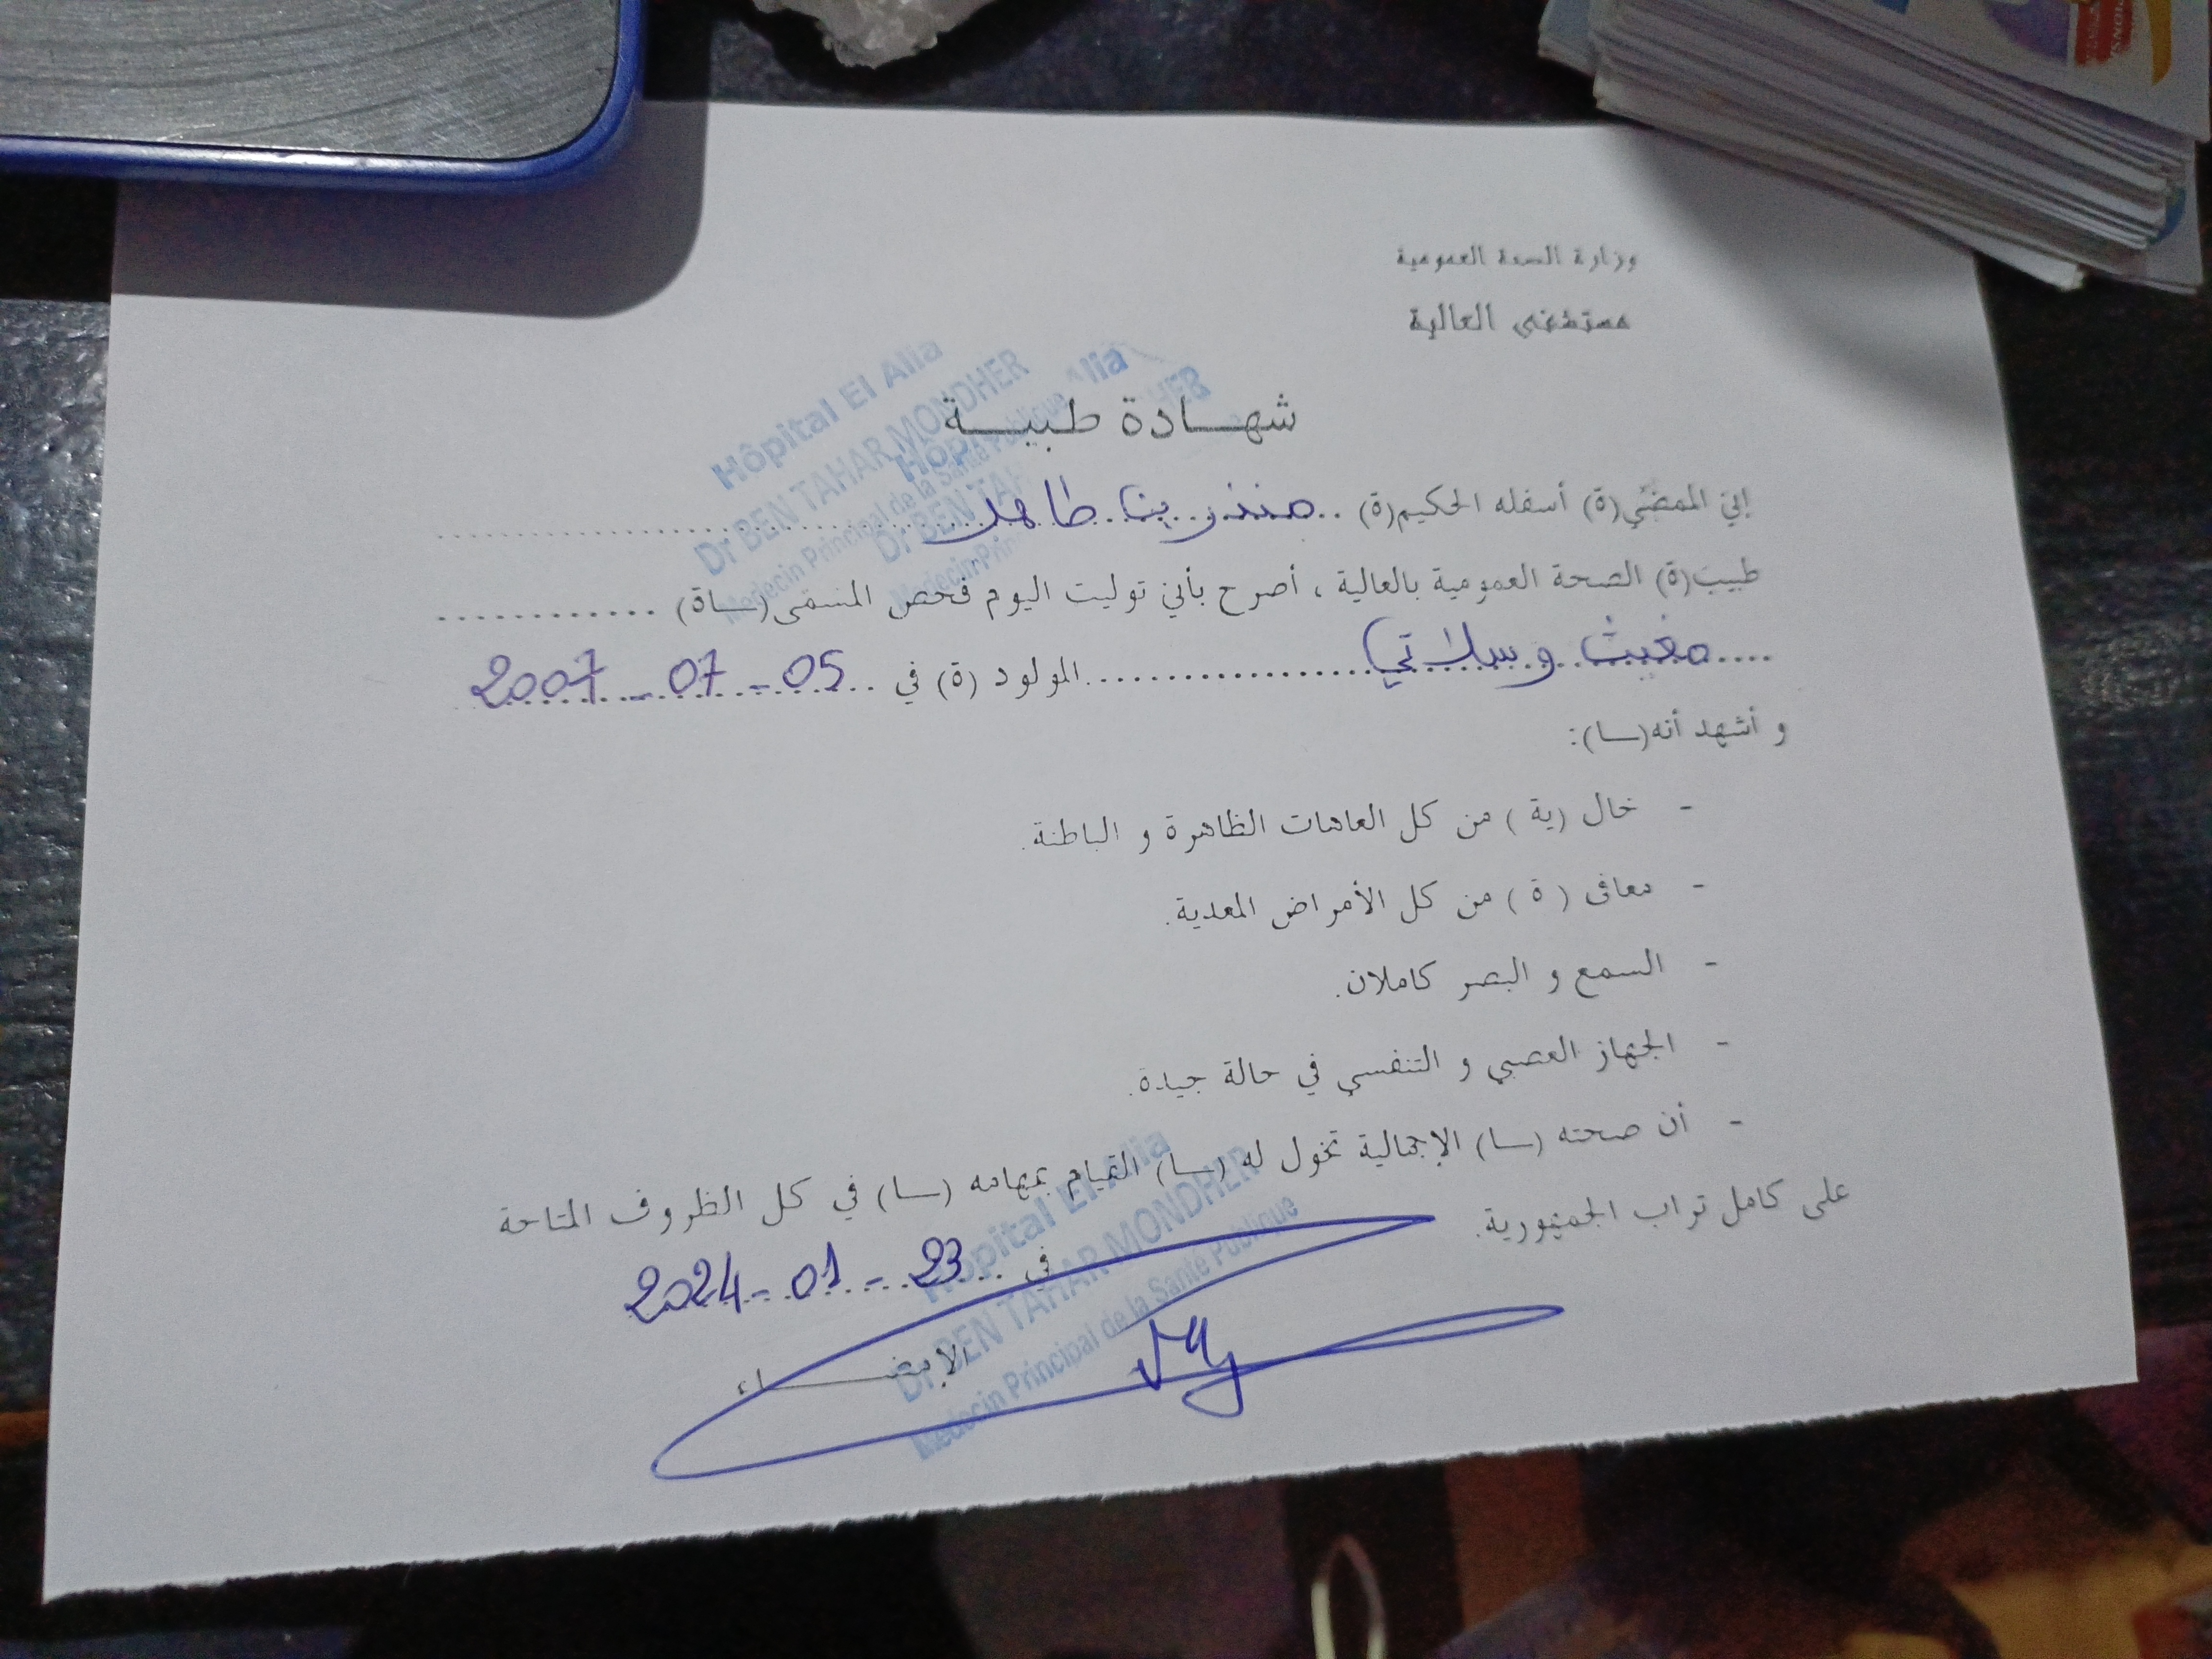 وزارة الصحة العمومية
مستشفى العالية
شهـــادة طبيـــة
Hôpital El Alia
Dr BEN TAHAR MONDHER
Medecin Principal de la Santé Publique
Hôpital El Alia
Dr BEN TAHAR MONDHER
Medecin Principal
إني الممضي(ة) أسفله الحكيم(ة) .. منذر بن طاهر ..........
طبيب(ة) الصحة العمومية بالعالية ، أصرح بأني توليت اليوم فحص المسمى(ـــاة) ............
.... مغيث وسلاتي .................... المولود (ة) في .. 2007 - 07 - 05
و أشهد أنه(ـــا):
- خال (ية ) من كل العاهات الظاهرة و الباطنة.
- معافى ( ة ) من كل الأمراض المعدية.
- السمع و البصر كاملان.
- الجهاز العصبي و التنفسي في حالة جيدة.
- أن صحته (ـــا) الإجمالية تخول له (ـــا) القيام بمهامه (ـــا) في كل الظروف المتاحة
على كامل تراب الجمهورية.
في ... 2024 - 01 - 23
الإمضـــــاء
Hôpital El Alia
Dr BEN TAHAR MONDHER
Medecin Principal de la Santé Publique